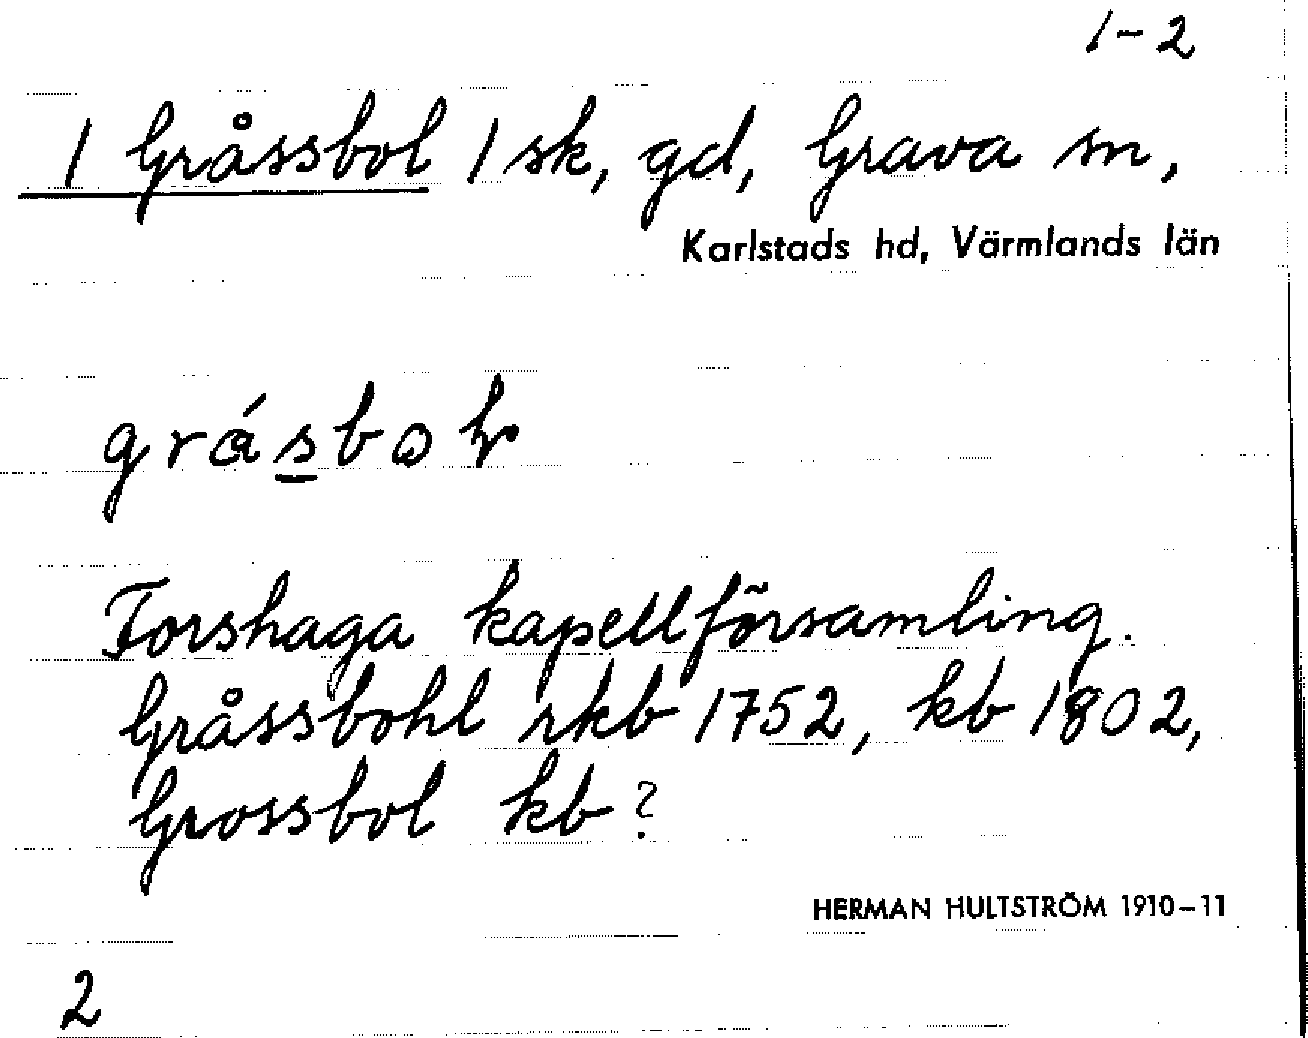 1-2
1 Gråssbol / sk, gd, Grava sn,
Karlstads hd, Värmlands län
Forshaga kapellförsamling.
Gråssbohl rkb 1752, kb 1802,
Grossbol kb?
HERMAN HULTSTRÖM 1910-11
2